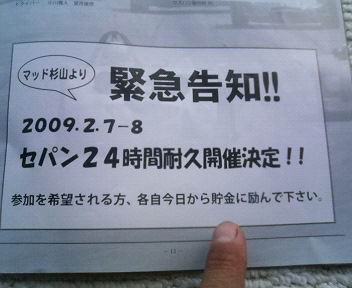 マッド杉山より
緊急告知!!
2009.2.7-8
セパン24時間耐久開催決定!!
参加を希望される方、各自今日から貯金に励んで下さい。